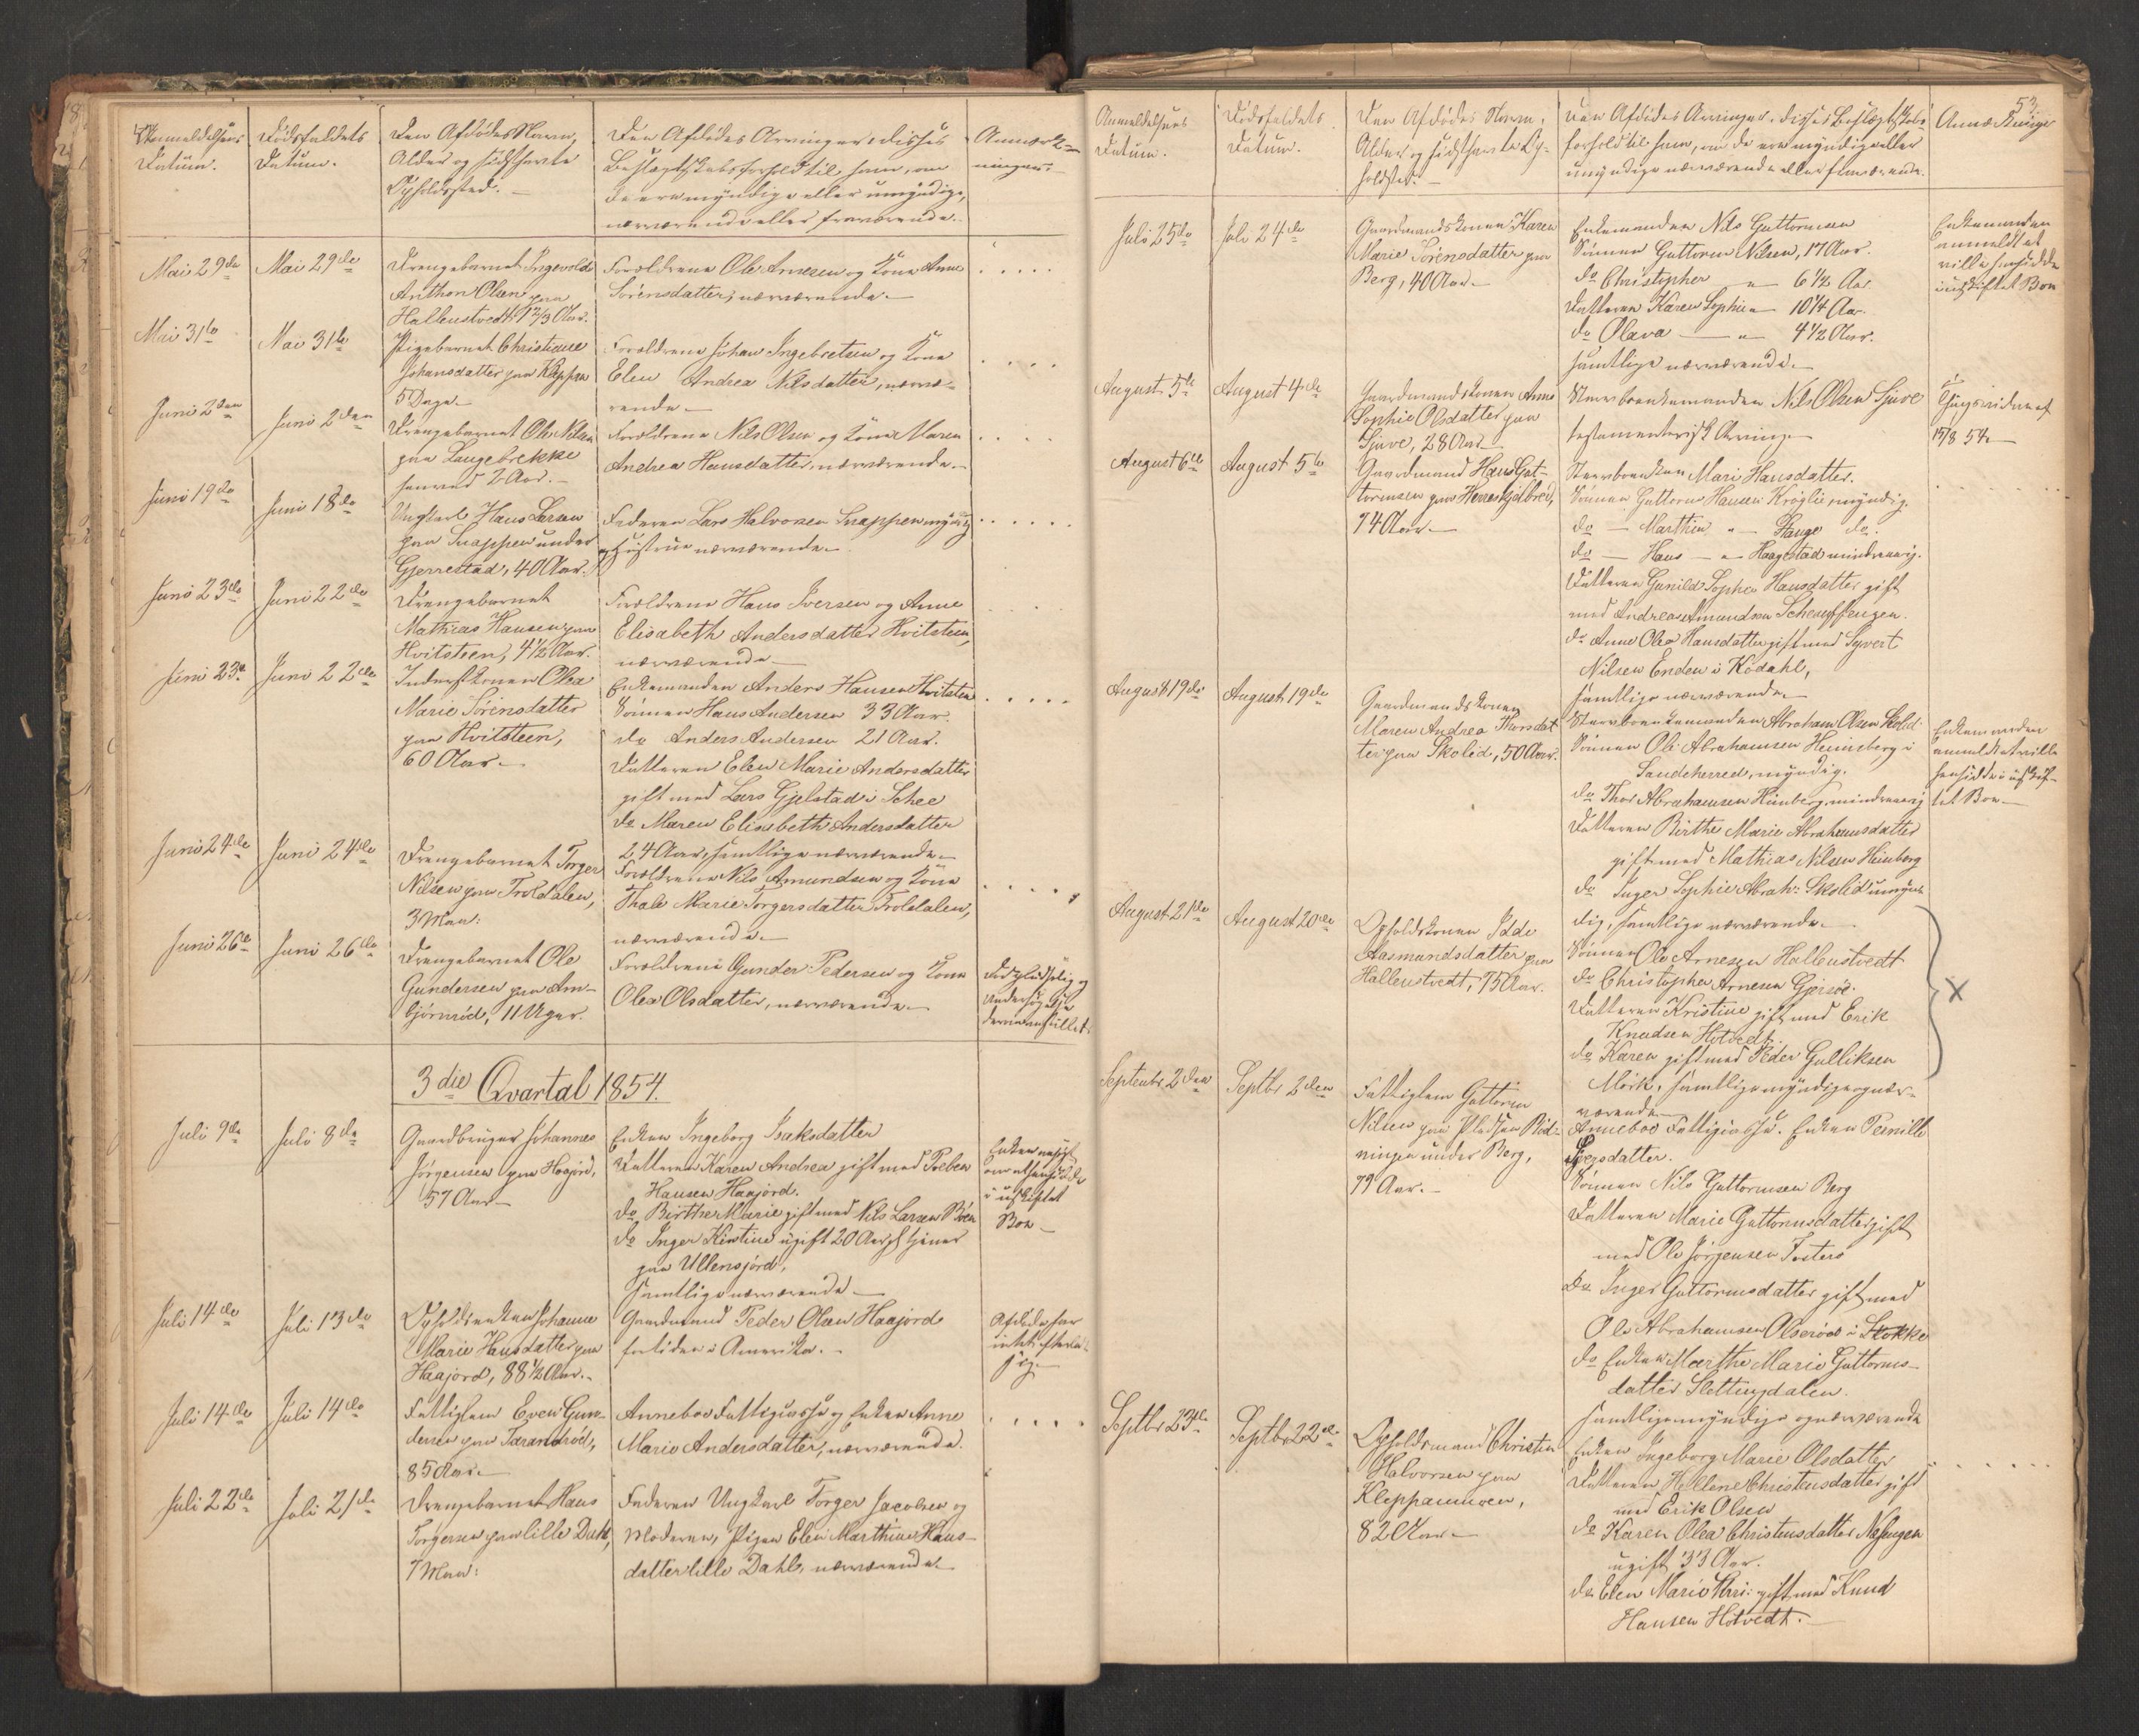 Anmeldelsens
Datum.
Dødsfaldets
Datum.
Den Afdødes Navn,
Alder og sidsthavte
Opholdssted.
Den Afdødes Arvinger, disses
Beslægtskabsforhold til ham, om
de ere myndige eller umyndige,
nærværende eller fraværende.
Anmærk-
ninger.
Mai 29de
Mai 29de
Drengebarnet Ingevold
Anthon Olsen paa
Hallenstvedt 1 2/3 Aar.
Forældrene Ole Arnesen og Kone Anne
Sørensdatter, nærværende.
Mai 31te
Mai 31te
Pigebarnet Christiane
Johansdatter paa Kleppan
5 Dage.
Forældrene Johan Ingebretsen og Kone
Elen Andrea Nilsdatter, nærvæ-
rende.
Juni 2den
Juni 2den
Drengebarnet Ole Nilsen
paa Langebrekke
henved 2 Aar.
Forældrene Nils Olsen og Kone Maren
Andrea Hansdatter, nærværende.
Juni 19de
Juni 18de
Ungkarl Hans Larsen
paa Snappen under
Gjerrestad, 40 Aar.
Faderen Lars Halvorsen Snappen myndig
og Hustrue nærværende.
Juni 23de
Juni 22de
Drengebarnet
Mathias Hansen paa
Hvitsteen, 4 1/2 Aar.
Forældrene Hans Iversen og Anne
Elisabeth Andersdatter Hvitsteen,
nærværende.
Juni 23de
Juni 22de
Inderstkonen Olea
Marie Sørensdatter
paa Hvitsteen,
60 Aar.
Enkemanden Anders Hansen Hvitsteen
Sønnen Hans Andersen 33 Aar.
do Anders Andersen 21 Aar.
Datteren Elen Marie Andersdatter
gift med Lars Gjelstad i Schee
do Maren Elisabeth Andersdatter
24 Aar, samtlige nærværende.
Juni 24de
Juni 24de
Drengebarnet Torger
Nilsen paa Troldalen,
3 Maan:
Forældrene Nils Amundsen og Kone
Thale Marie Torgersdatter Troldalen,
nærværende.
Juni 26de
Juni 26de
Drengebarnet Ole
Gundersen paa Am-
bjørnrød, 11 Uger.
Forældrene Gunder Pedersen og Kone
Olea Olsdatter, nærværende.
3die Qvartal 1854.
Juli 9de
Juli 8de
Gaardbruger Johannes
Jørgensen paa Hogjord,
57 Aar
Enken Ingeborg Isaksdatter
Datteren Karen Andrea gift med Preben
Hansen Haajord.
do Birthe Marie gift med Nils Larsen Bøen
do Inger Kirstine ugift 20 Aar, tjener
paa Ullensjord,
Samtlige nærværende
i uskiftet
Boe
Juli 14de
Juli 13de
Opholdsenken Johanne
Marie Hansdatter paa
Haajord, 88 1/2 Aar.
Gaardmand Peder Olsen Haajord
for tiden i Amerika.
Afdøde har
intet efterladt
sig.
Juli 14de
Juli 14de
Fattiglem Even Gun-
dersen paa Tarandrød,
85 Aar.
Anneboe Fattigcasse og Enken Anne
Marie Andersdatter, nærværende.
Juli 22de
Juli 21de
Drengebarnet Hans
Torgersen paa lille Dahl,
7 Maan:
Faderen Ungkarl Torger Jacobsen og
Moderen, Pigen Elen Marthine Hans-
datter lille Dahl, nærværende.
53
Anmeldelsens
Datum.
Dødsfaldets
Datum.
Den Afdødes Navn,
Alder og sidsthavte Op-
holdsted.
Den Afdødes Arvinger, disses Beslægtskabs-
forhold til ham, om de ere myndige eller
umyndige nærværende eller fraværende.
Anmærkninger
Juli 25de
Juli 24de
Gaardmandskonen Karen
Marie Sørensdatter paa
Berg, 40 Aar.
Enkemanden Nils Guttormsen
Sønnen Guttorm Nilsen, 17 Aar.
do Christopher " 6 1/2 Aar
Datteren Karen Sophie 10 1/4 Aar.
do Olava " 4 1/2 Aar.
samtlige nærværende.
Enkemanden
anmeldt at
ville hensidde
i uskiftet Boe
August 5te
August 4de
Gaardmandskonen Anne
Sophie Olsdatter paa
Sjuve, 28 Aar
Stervboenkemanden Nils Olsen Sjuve
testamentarisk Arving.
15/8 54
August 6te
August 5te
Gaardmand Hans Gut-
tormsen paa Herreskjelbred,
74 Aar.
Stervboenken Mari Hansdatter.
Sønnen Guttorm Hansen Krøglie, myndig.
do Marthin " Hauge do.
do Hans " Haagestad mindreaarig.
Datteren Gunild Sophie Hansdatter gift
med Andreas Amundsen
do Anne Olea Hansdatter gift med Syvert
Nilsen Enden i Kodahl,
samtlige nærværende.
August 19de
August 19de
Gaardmandskonen
Maren Andrea Thorsdat
ter paa Skolid, 50 Aar.
Stervboenkemanden Abraham Olsen Skolid
Sønnen Ole Abrahamsen Heimberg i
Sandeherred, myndig.
do Thor Abrahamsen Himberg, mindreaarig
Datteren Birthe Marie Abrahamsdatter
gift med Mathias Nilsen Heinberg
do Inger Sophie Abrah: Skolid umyn-
dig, samtlige nærværende.
Enkemanden
anmeldt at ville
hensidde i uskif-
tet Boe.
August 21de
August 20de
Opholdskonen Idde
Aasmundsdatter paa
Hallenstvedt, 75 Aar.
Sønnen Ole Arnesen Hallenstvedt
do Christopher Arnesen Gjersøe.
Datteren Kristine gift med Erik
Knudsen Hotvedt,
do Karen gift med Peder Gulliksen
Mørk, samtlige myndige og nær-
værende
X
Septembr 2den
Septbr 2den
Fattiglem Guttorm
Nilsen paa Pladsen Rød-
ningen under Berg,
79 Aar.
Anneboe Fattigcasse. Enken Pernille
Sønnen Nils Guttormsen Berg
Datteren Marie Guttormsdatter gift
med Ole Jørgensen
do Inger Guttormsdatter gift med
Ole Abrahamsen Olserød i Stokke
do Enken Marthe Marie Guttorms-
datter Slettingdalen.
samtlige myndige og nærværende
Septbr 23de
Septbr 22de
Opholdsmand Christen
Halvorsen paa
Kleppanmoen,
82 Aar.
Enken Ingeborg Marie Olsdatter
Datteren Hellene Christensdatter gift
med Erik Olsen
do Karen Olea Christensdatter
ugift 33 Aar.
do Elen Marie Chri: gift med Knud
Hansen Hotvedt.